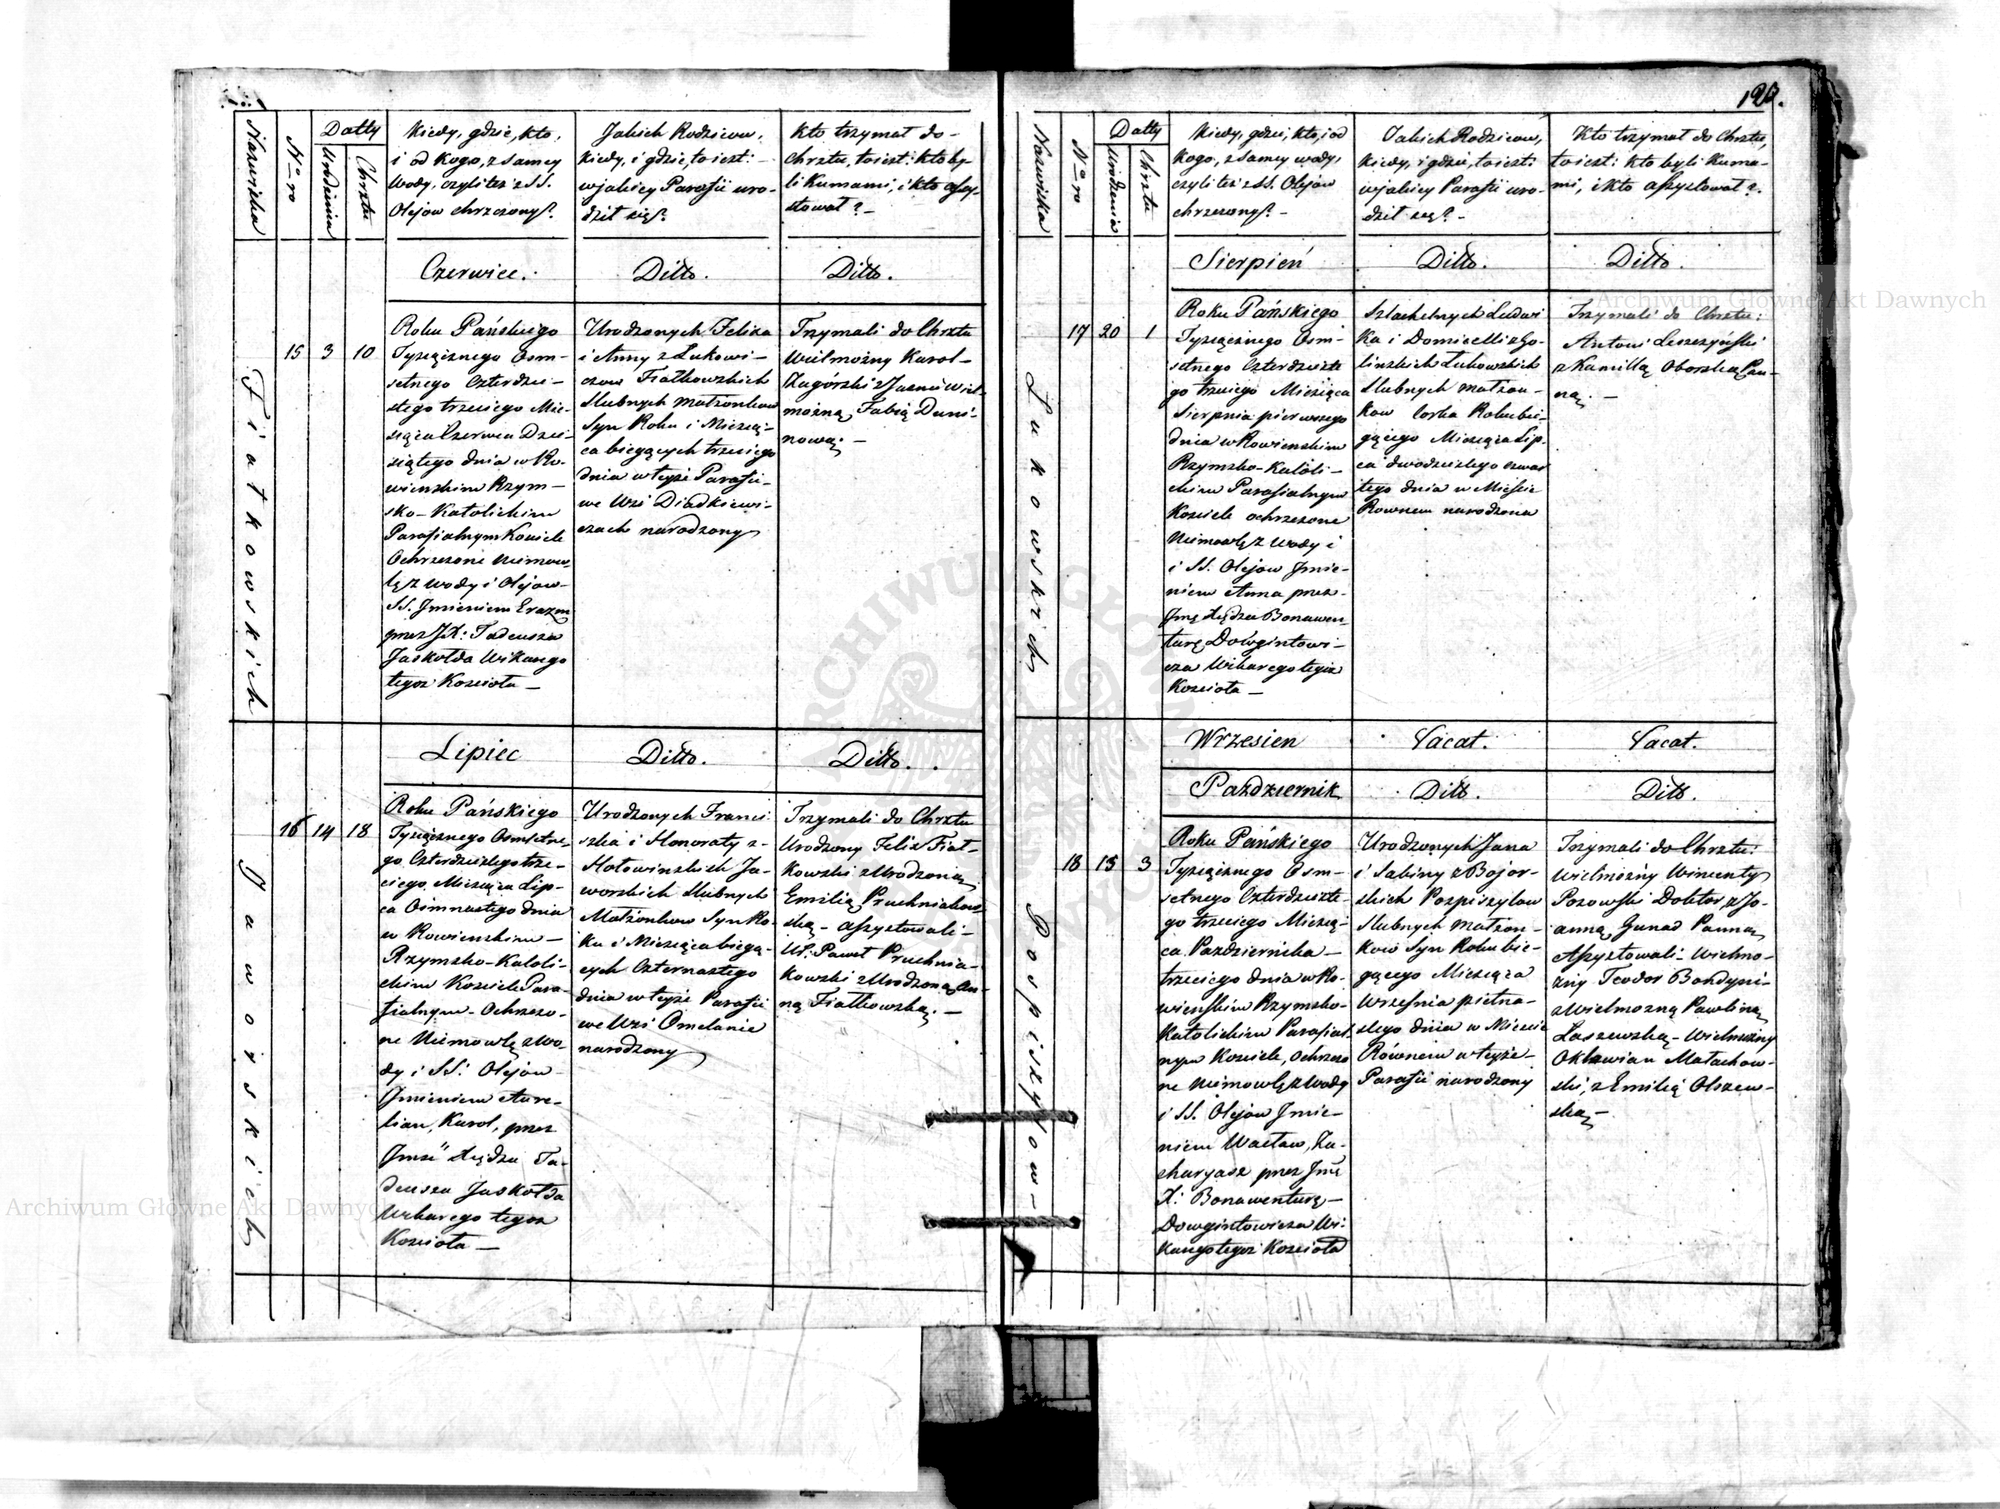 120.
Nazwiska
Nro
Datty
Urodzenia
Chrztu
Kiedy, gdzie, kto,
i od kogo, z samey
Wody, czyli też z SS.
Olejow chrzczony?.
Jakich Rodziców,
kiedy, i gdzie, to iest:
w jakiey Parafii uro-
dził się?
Kto trzymał do-
Chrztu, to iest: kto by-
li Kumami, i kto assy-
stował? -
Czerwiec.
Ditto.
Ditto.
Fiałkowskich
15
3
10
Roku Pańskiego
Tysiącznego Osm-
setnego Czterdzie-
stego trzeciego Mie-
siąca Czerwca Dzie-
siątego dnia w Ro-
wienskim Rzym-
sko-Katolickim
Parafialnym Kościele
Ochrzczone Niemow-
lę z Wody i Olejow
SS. Jmieniem Erazm
przez JX: Tadeusza
Jaskołda Wikarego
tegoż Kościoła -
Urodzonych Felixa
i Anny z Łukowi-
czow Fiałkowskich
Slubnych Małżonkow
Syn Roku i Miesią-
ca bieżących trzeciego
dnia w teyże Parafii
we Wsi Diadkiewi-
czach narodzony
Trzymali do Chrztu
Wielmożny Karol
Zagórski z Jasnie Wiel-
możną Fabią Duni-
nową. -
Lipiec
Ditto.
Ditto.
Jaworskich
16
14
18
Roku Pańskiego
Tysiącznego Osmsetne-
go Czterdziestego trze-
ciego Miesiąca Lip-
ca Osmnastego dnia
w Rowienskim -
Rzymsko-Katoli-
ckim Kościele Para-
fialnym - Ochrzczo-
ne Niemowlę z Wo-
dy i SS. Olejow
Jmieniem Aure-
lian, Karol, przez
Xiędza Ta-
deusza Jaskołda
Wikarego tegoż
Kościoła -
Urodzonych Franci-
szka i Honoraty z-
Hołowinskich Ja-
worskich Slubnych
Małżonkow Syn Ro-
ku i Miesiąca bieżą-
cych Czternastego
dnia w teyże Parafii
we Wsi Omelanie
narodzony
Trzymali do Chrztu
Urodzony Felix Fiał-
kowski z Urodzoną
Emilią Pruchniakow-
ską - assystowali-
Ur. Paweł Pruchnia-
kowski z Urodzoną An-
ną Fiałkowską. -
Nazwiska
Nro
Datty
Urodzenia
Chrztu
Kiedy, gdzie, kto, i od
kogo, z samey wody,
czyli też z SS. Olejow
chrzczony?. -
Jakich Rodzicow,
kiedy, i gdzie, to iest:
w jakiey Parafii uro-
dził się? -
Kto trzymał do Chrztu,
to iest: kto byli Kuma-
mi, i kto assystował?.
Sierpień
Ditto.
Ditto.
Łukowskich
17
20
1
Roku Pańskiego
Tysiącznego Osm-
setnego Czterdzieste-
go trzeciego Miesiąca
Sierpnia pierwszego
dnia w Rowienskim
Rzymsko-Katoli-
ckim Parafialnym
Kościele ochrzczone
Niemowlę z Wody i
i SS. Olejow Jmie-
niem Anna przez
Xiędza Bonawen-
turę Dowgintowi-
cza Wikarego tegoż
Kościoła -
Szlachetnych Ludwi
ka i Domicelli z Go-
linskich Łukowskich
Slubnych małżon-
kow Corka Roku bie-
żącego Miesiąca Lip-
ca dwodziestego czwar
tego dnia w Mieście
Rownem narodzona
Trzymali do Chrztu:
Antoni Leszczyński
z Kamillą Oborską Pan-
ną. -
Wrzesień
Vacat.
Vacat.
Październik
Ditt.
Ditt.
Pospiszylow-
18
15
3
Roku Pańskiego
Tysiącznego Osm-
setnego Czterdzieste-
go trzeciego Miesią-
ca Października -
trzeciego dnia w Ro-
wieńskim Rzymsko-
Katolickim Parafial-
nym Kościele, Ochrzczo
ne Niemowlę z Wody
i SS. Olejow Jmie-
niem Wacław, Za-
charyasz przez
X: Bonawenturę -
Dowgintowicza Wi-
karego tegoż Kościoła
Urodzonych Jana
i Sabiny z Bojar-
skich Pospiszylow
Slubnych Małżon-
kow Syn Roku bie-
żącego Miesiąca
Września piętna-
stego dnia w Mieście
Równem w teyże-
Parafii narodzony
Trzymali do Chrztu:
Wielmożny Wincenty
Pozowski Doktor, z Jo-
anną Gunad Panną
Assystowali Wielmo-
żny Teodor Bondyni-
z Wielmożną Pawliną
Laszewską - Wielmożny
Oktawian Małachow-
ski, z Emilią Olszew-
ską -
Archiwum Główne Akt Dawnych
Archiwum Główne Akt Dawnych